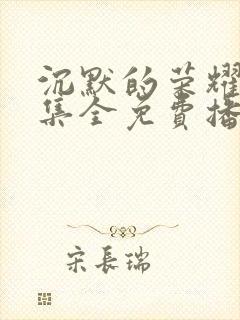 沉默的荣耀
集全免費播
宋長瑞